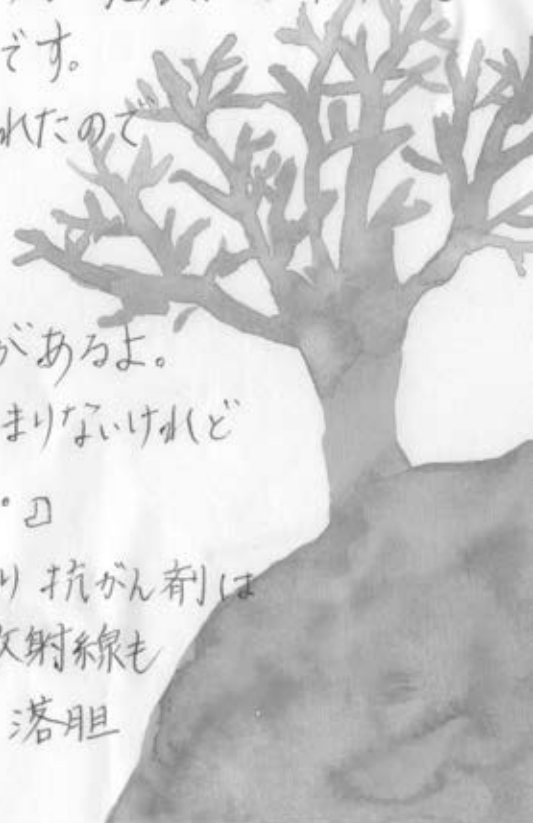 です。
れたので
があるよ。
まりないけれど
・』
り 抗がん剤は
放射線も
落胆